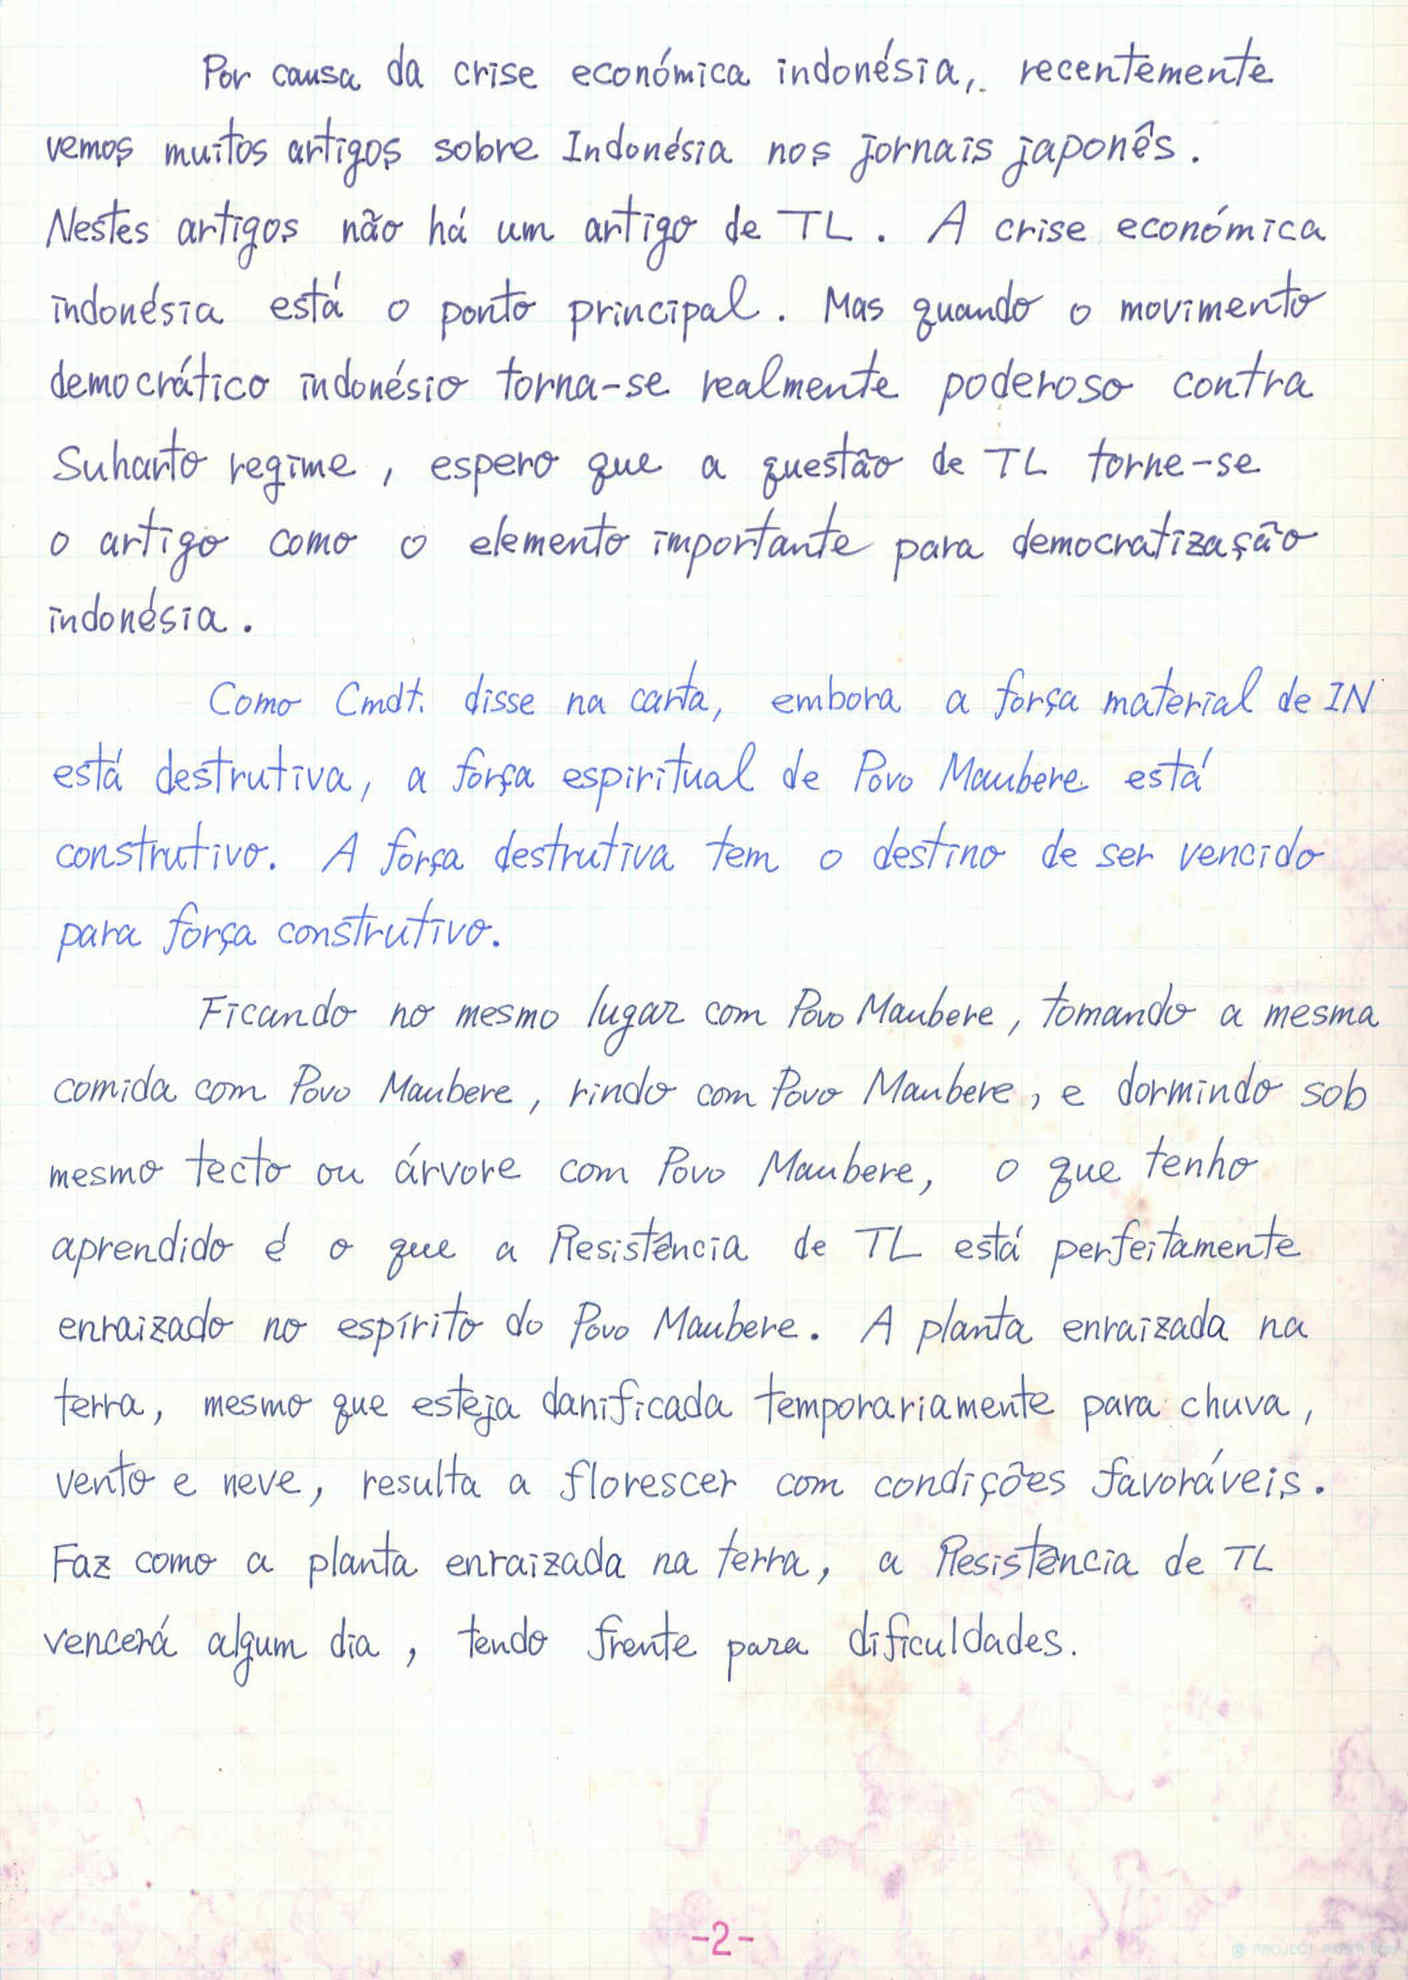 Por causa da crise económica indonésia, recentemente
vemos muitos artigos sobre Indonésia nos jornais japonês.
Nestes artigos não há um artigo de TL. A crise económica
indonésia está o ponto principal. Mas quando o movimento
democrático indonésio torna-se realmente poderoso contra
Suharto regime, espero que a questão de TL torne-se
o artigo como o elemento importante para democratização
indonésia.
Como Cmdt. disse na carta, embora a força material de IN
está destrutiva, a força espiritual de Povo Maubere está
construtivo. A força destrutiva tem o destino de ser vencido
para força construtivo.
Ficando no mesmo lugar com Povo Maubere, tomando a mesma
comida com Povo Maubere, rindo com Povo Maubere, e dormindo sob
mesmo tecto ou árvore com Povo Maubere, o que tenho
aprendido é o que a Resistência de TL está perfeitamente
enraizado no espírito do Povo Maubere. A planta enraizada na
terra, mesmo que esteja danificada temporariamente para chuva,
vento e neve, resulta a florescer com condições favoráveis.
Faz como a planta enraizada na terra, a Resistência de TL
vencerá algum dia, tendo frente para dificuldades.
-2-